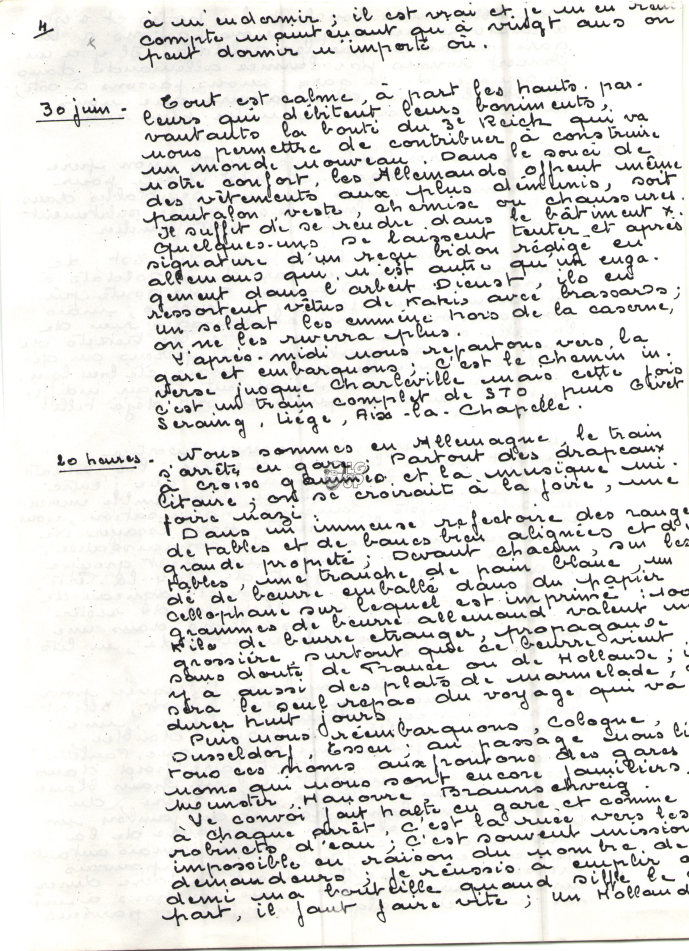 4
à m'endormir ; il est vrai et je m'en
compte maintenant qu'à vingt ans on
peut dormir n'importe où.
30 juin. Tout est calme, à part les hauts-par-
leurs qui débitent leurs boniments,
vantants la bonté du 3e Reich qui va
nous permettre de contribuer à construire
un monde nouveau. Dans le souci de
notre confort, les Allemands offrent même
des vêtements aux plus démunis, soit
pantalon, veste, chemise ou chaussures.
Il suffit de se rendre dans le bâtiment X.
Quelques-uns se laissent tenter et après
signature d'un reçu bidon rédigé en
allemans qui n'est autre qu'un enga-
gement dans l'arbeit Dienst, ils en
ressortent vêtus de Kakis avec brassards ;
un soldat les emmène hors de la caserne,
on ne les rverra plus.
L'après-midi nous repartons vers la
gare et embarquons ; c'est le chemin in-
verse jusque Charleville mais cette fois
c'est un train complet de STO, puis Givet
Seraing, Liège, Aix-la-Chapelle.
20 heures. Nous sommes en Allemagne, le train
s'arrête en gare. Partout des drapeaux
à croix gammée et la musique mi-
litaire ; on se croirait à la foire, une
foire nazi.
Dans un immense refectoire des range
de tables et de bancs bien alignées et d'
grande propreté ; Devant chacun, sur les
tables, une tranche de pain blanc, un
dé de beurre emballé dans du papier
cellophane sur lequel est imprimé : 100
grammes de beurre allemand valent un
Kilo de beurre etranger, propagande
grossière, surtout que ce beurre vient
sans doute de France ou de Hollande ; i
y a aussi des plats de marmelade,
sera le seul repas du voyage qui va
durer huit jours
Puis nous réembarquons, Cologne,
Dusseldorf, Essen ; au passage nous li
tous ces noms aux frontons des gares
noms qui nous sont encore familiers.
Meunster, Hanovre Braunschveig.
Le convoi fait halte en gare et comme
à chaque arrêt, c'est la ruée vers les
robinets d'eau ; c'est souvent mission
impossible en raison du nombre de
demandeurs ; je réussis à emplir à
demi ma bouteille quand siffle le
part, il faut faire vite ; un Holland